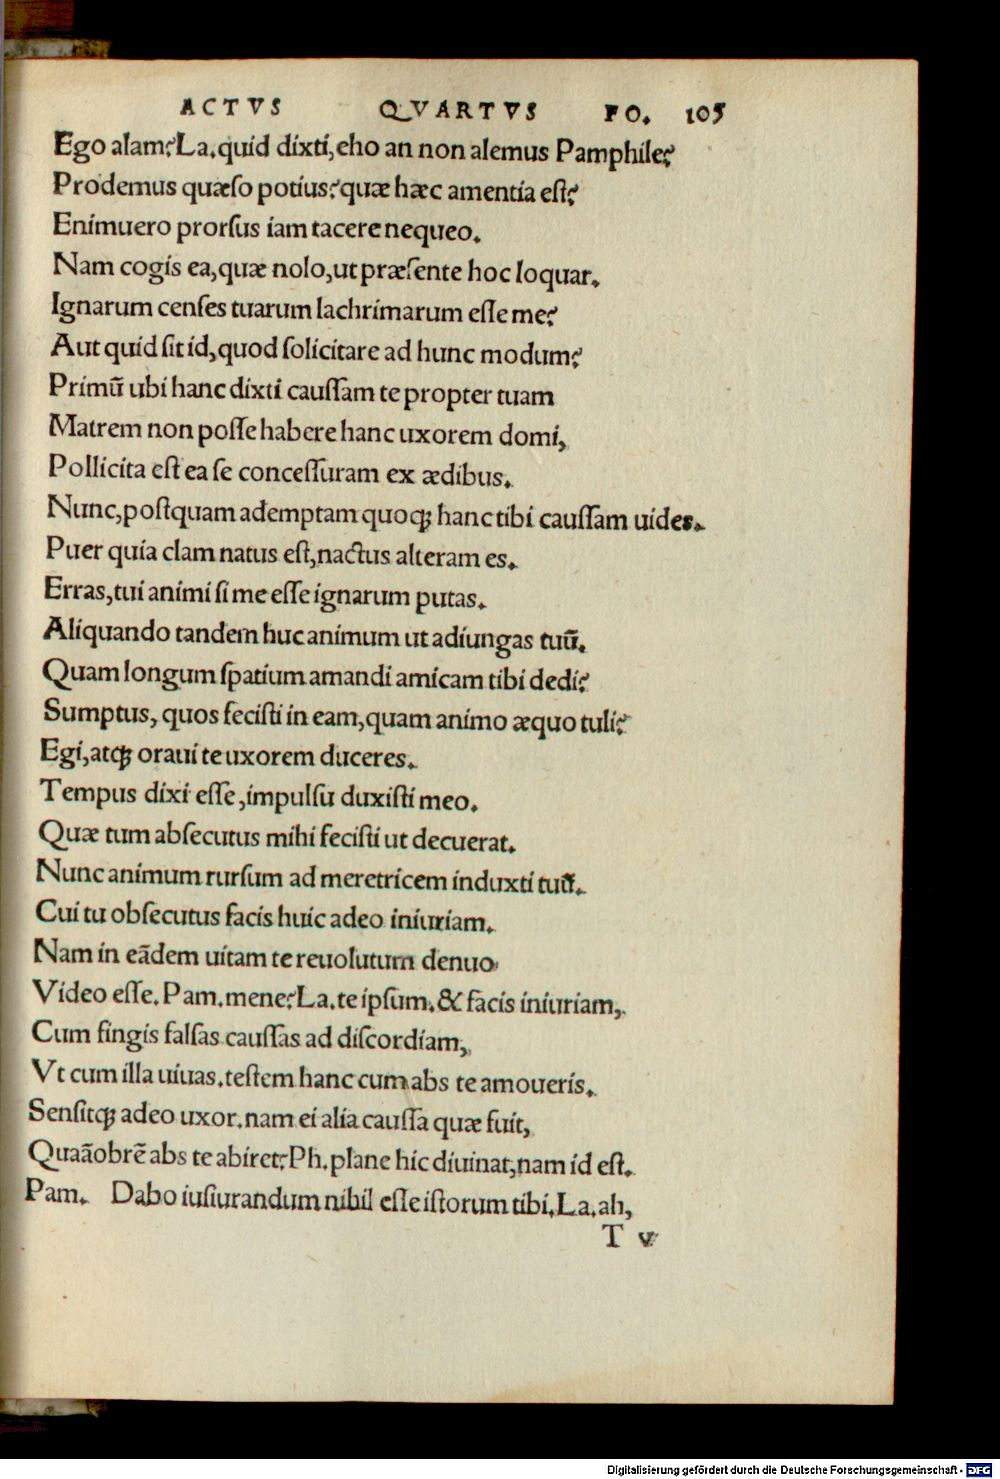 ACTVS QVARTVS FO. 105
Ego alam? La. quid dixti, eho an non alemus Pamphile?
Prodemus quæso potius? quæ hæc amentia est?
Enimuero prorsus iam tacere nequeo.
Nam cogis ea, quæ nolo, ut præsente hoc loquar.
Ignarum censes tuarum lachrimarum esse me?
Aut quid sit id, quod solicitare ad hunc modum?
Primũ ubi hanc dixti caussam te propter tuam
Matrem non posse habere hanc uxorem domi,
Pollicita est ea se concessuram ex ædibus.
Nunc, postquam ademptam quoqꝫ hanc tibi caussam uides.
Puer quia clam natus est, nactus alteram es.
Erras, tui animi si me esse ignarum putas.
Aliquando tandem huc animum ut adiungas tuũ.
Quam longum spatium amandi amicam tibi dedi?
Sumptus, quos fecisti in eam, quam animo æquo tuli?
Egi, atqꝫ oraui te uxorem duceres.
Tempus dixi esse, impulsu duxisti meo.
Quæ tum absecutus mihi fecisti ut decuerat.
Nunc animum rursum ad meretricem induxti tuũ.
Cui tu obsecutus facis huic adeo iniuriam.
Nam in eãdem uitam te reuolutum denuo
Video esse. Pam. mene? La. te ipsum. & facis iniuriam,
Cum fingis falsas caussas ad discordiam,
Vt cum illa uiuas. testem hanc cum abs te amoueris.
Sensitqꝫ adeo uxor. nam ei alia caussa quæ fuit,
Quaãobrẽ abs te abiret? Ph. plane hic diuinat, nam id est.
Pam. Dabo iusiurandum nihil esse istorum tibi. La. ah,
T v
Digitalisierung gefördert durch die Deutsche Forschungsgemeinschaft - DFG